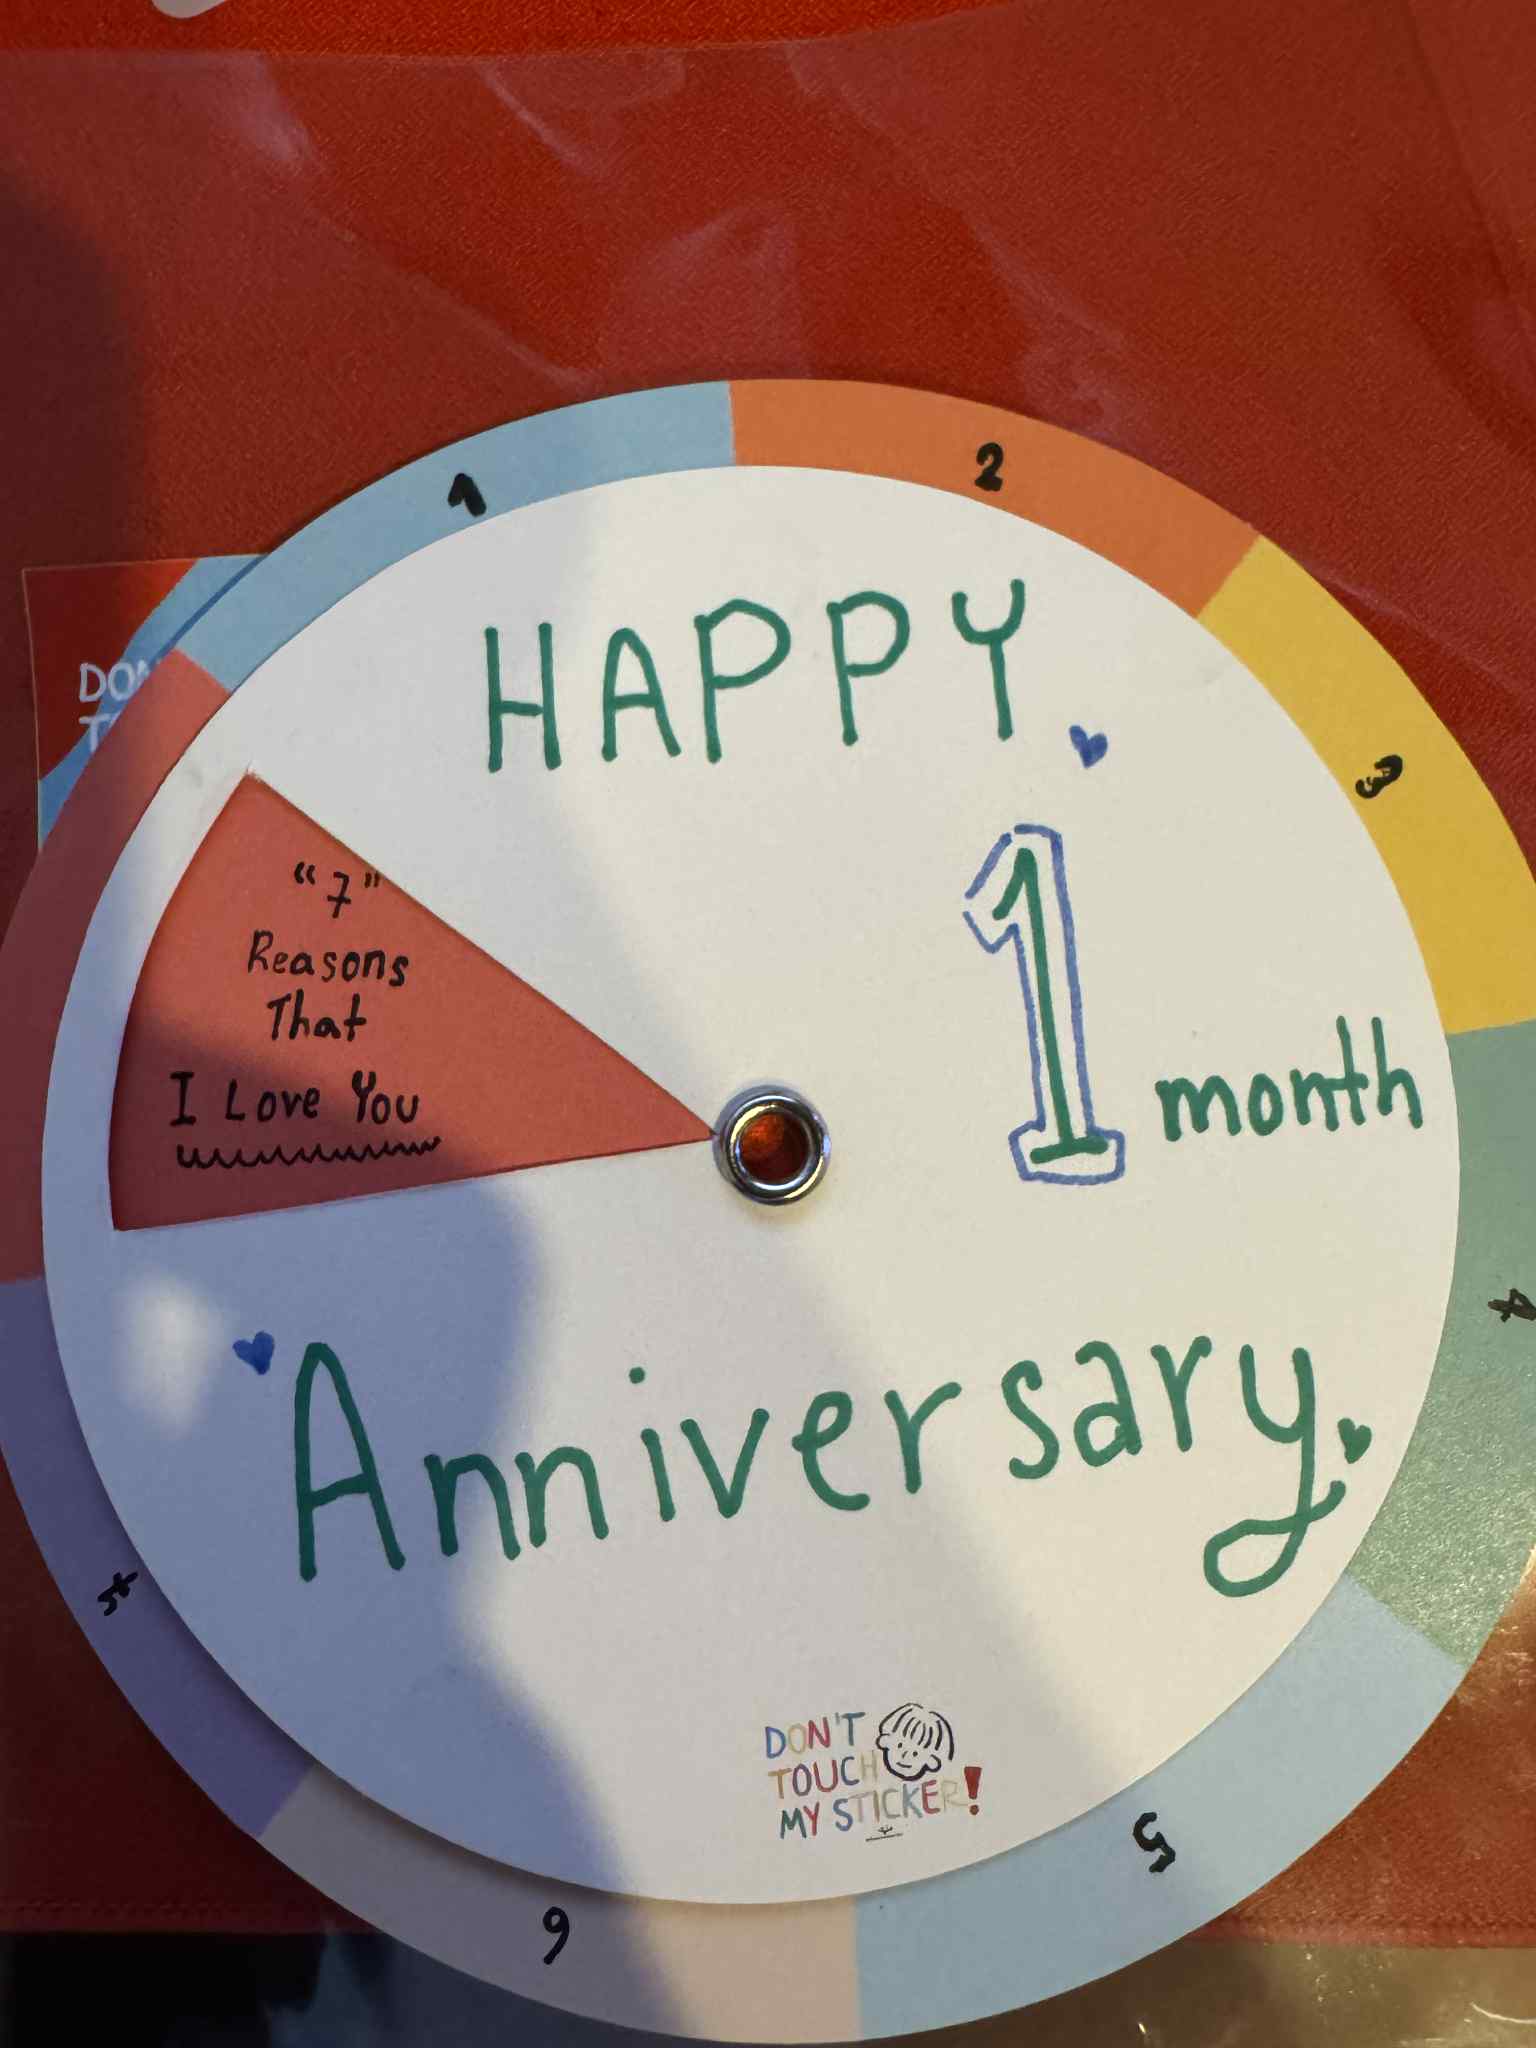 1
2
3
4
5
6
HAPPY
1 month
Anniversary
"7"
Reasons
That
I Love You
DON'T
TOUCH
MY STICKER!